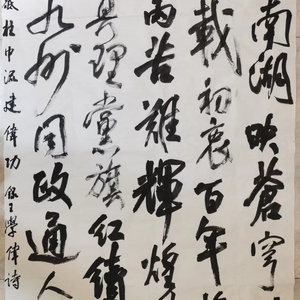 南湖映蒼穹
載初衷百年
雨苦難輝煌
理黨旗紅續
九州同政通人
柱中流建偉功 錄王學偉詩